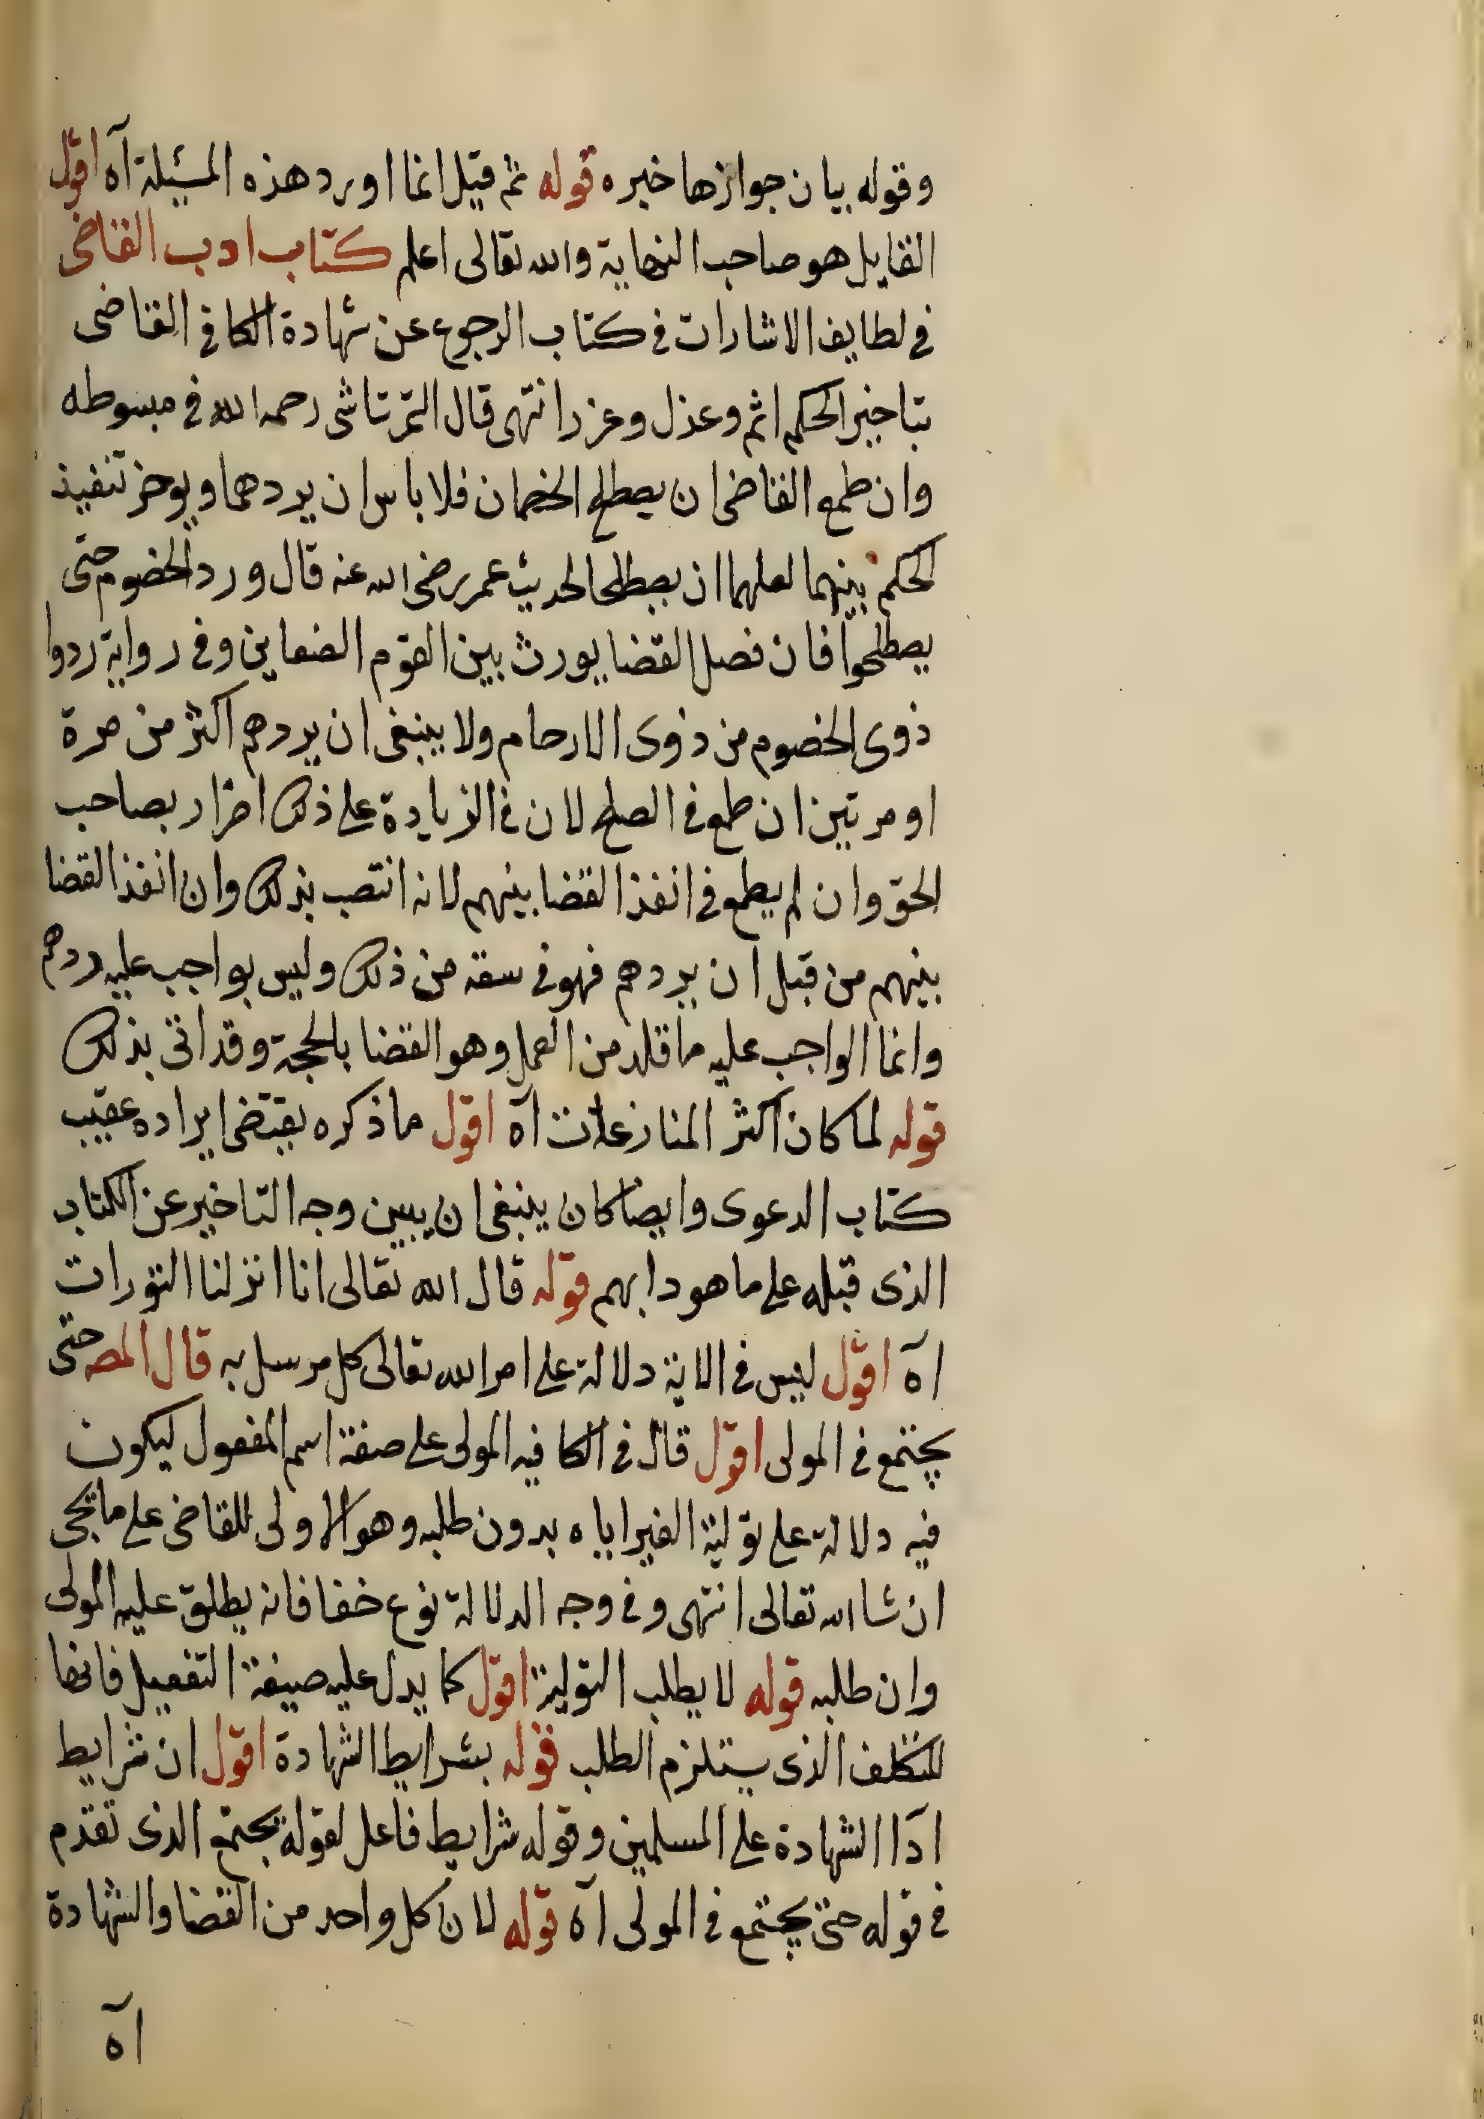 وقوله بيان جوازها خبره قوله ثم قيل انما اورد هذه المسئلة آه اقول
القايل هو صاحب النهاية والله تعالى اعلم كتاب ادب القاضى
فى لطايف الاشارات فى كتاب الرجوع عن شهادة الكافى القاضى
بتاخير الحكم اثم وعذل وعزر انتهى قال التمرتاشى رحمه الله فى مبسوطه
وان طمع القاضى ان يصطلح الخصمان فلا باس ان يردهما ويوخر تنفيذ
الحكم بينهما لعلهما ان يصطلحا لحديث عمر رضى الله عنه قال ورد الخصوم حتى
يصطلحوا فان فصل القضا يورث بين القوم الضغاين وفى رواية ردوا
ذوى الخصوم من ذوى الارحام ولا ينبغى ان يردهم اكثر من مرة
او مرتين ان طمع فى الصلح لان فى الزيادة على ذلك اضرار بصاحب
الحق وان لم يطمع فى انفذ القضا بينهم لانه انتصب بذلك وان انفذ القضا
بينهم من قبل ان يردهم فهو فى سعة من ذلك وليس بواجب عليه ردهم
وانما الواجب عليه ما قلد من العمل وهو القضا بالحجة وقد اتى بذلك
قوله لما كان اكثر المنازعات آه اقول ما ذكره يقتضى ايراده عقيب
كتاب الدعوى وايضا كان ينبغى ان يبين وجه التاخير عن الكتاب
الذى قبله على ما هو دابهم قوله قال الله تعالى انا انزلنا التورات
آه اقول ليس فى الاية دلالة على امر الله تعالى كل مرسل به قال المص حتى
يجتمع فى المولى اقول قال فى الكافيه المولى على صفة اسم المفعول ليكون
فيه دلالة على تولية الغير اياه بدون طلبه وهو الاولى للقاضى على ما يجى
ان شا الله تعالى انتهى وفى وجه الدلالة نوع خفا فانه يطلق عليه المولى
وان طلبه قوله لا يطلب التولية اقول كما يدل عليه صيغة التفعيل فانها
للتكلف الذى يستلزم الطلب قوله بشرايط الشهادة اقول ان شرايط
ادا الشهادة على المسلمين وقوله شرايط فاعل لقوله يجتمع الذى تقدم
فى قوله حتى يجتمع فى المولى آه قوله لان كل واحد من القضا والشهادة
آه